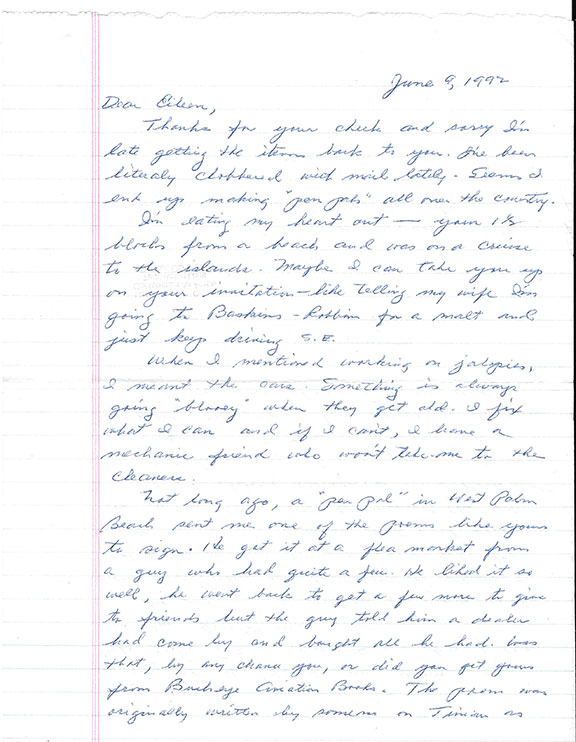 June 9, 1992
Dear Eileen,
Thanks for your check and sorry I'm
late getting the items back to you. I've been
literaly clobbered with mail lately. Seems I
end up making "pen pals" all over the country.
I'm eating my heart out — your 1½
blocks from a beach and was on a cruise
to the islands. Maybe I can take you up
on your invitation - like telling my wife I'm
going to Baskins-Robbins for a malt and
just keep driving S.E.
When I mentioned working on jalopies,
I meant the cars. Something is always
going "blooey" when they get old. I fix
what I can and if I can't, I have a
mechanic friend who won't take me to the
cleaners.
Not long ago, a "pen pal" in West Palm
Beach sent me one of the poems like yours
to sign. He got it at a flea market from
a guy who had quite a few. He liked it so
well, he went back to get a few more to give
to friends but the guy told him a dealer
had come by and bought all he had. Was
that, by any chance you, or did you get yours
from Buckeye Aviation Books. The poem was
originally written by someone on Tinian as